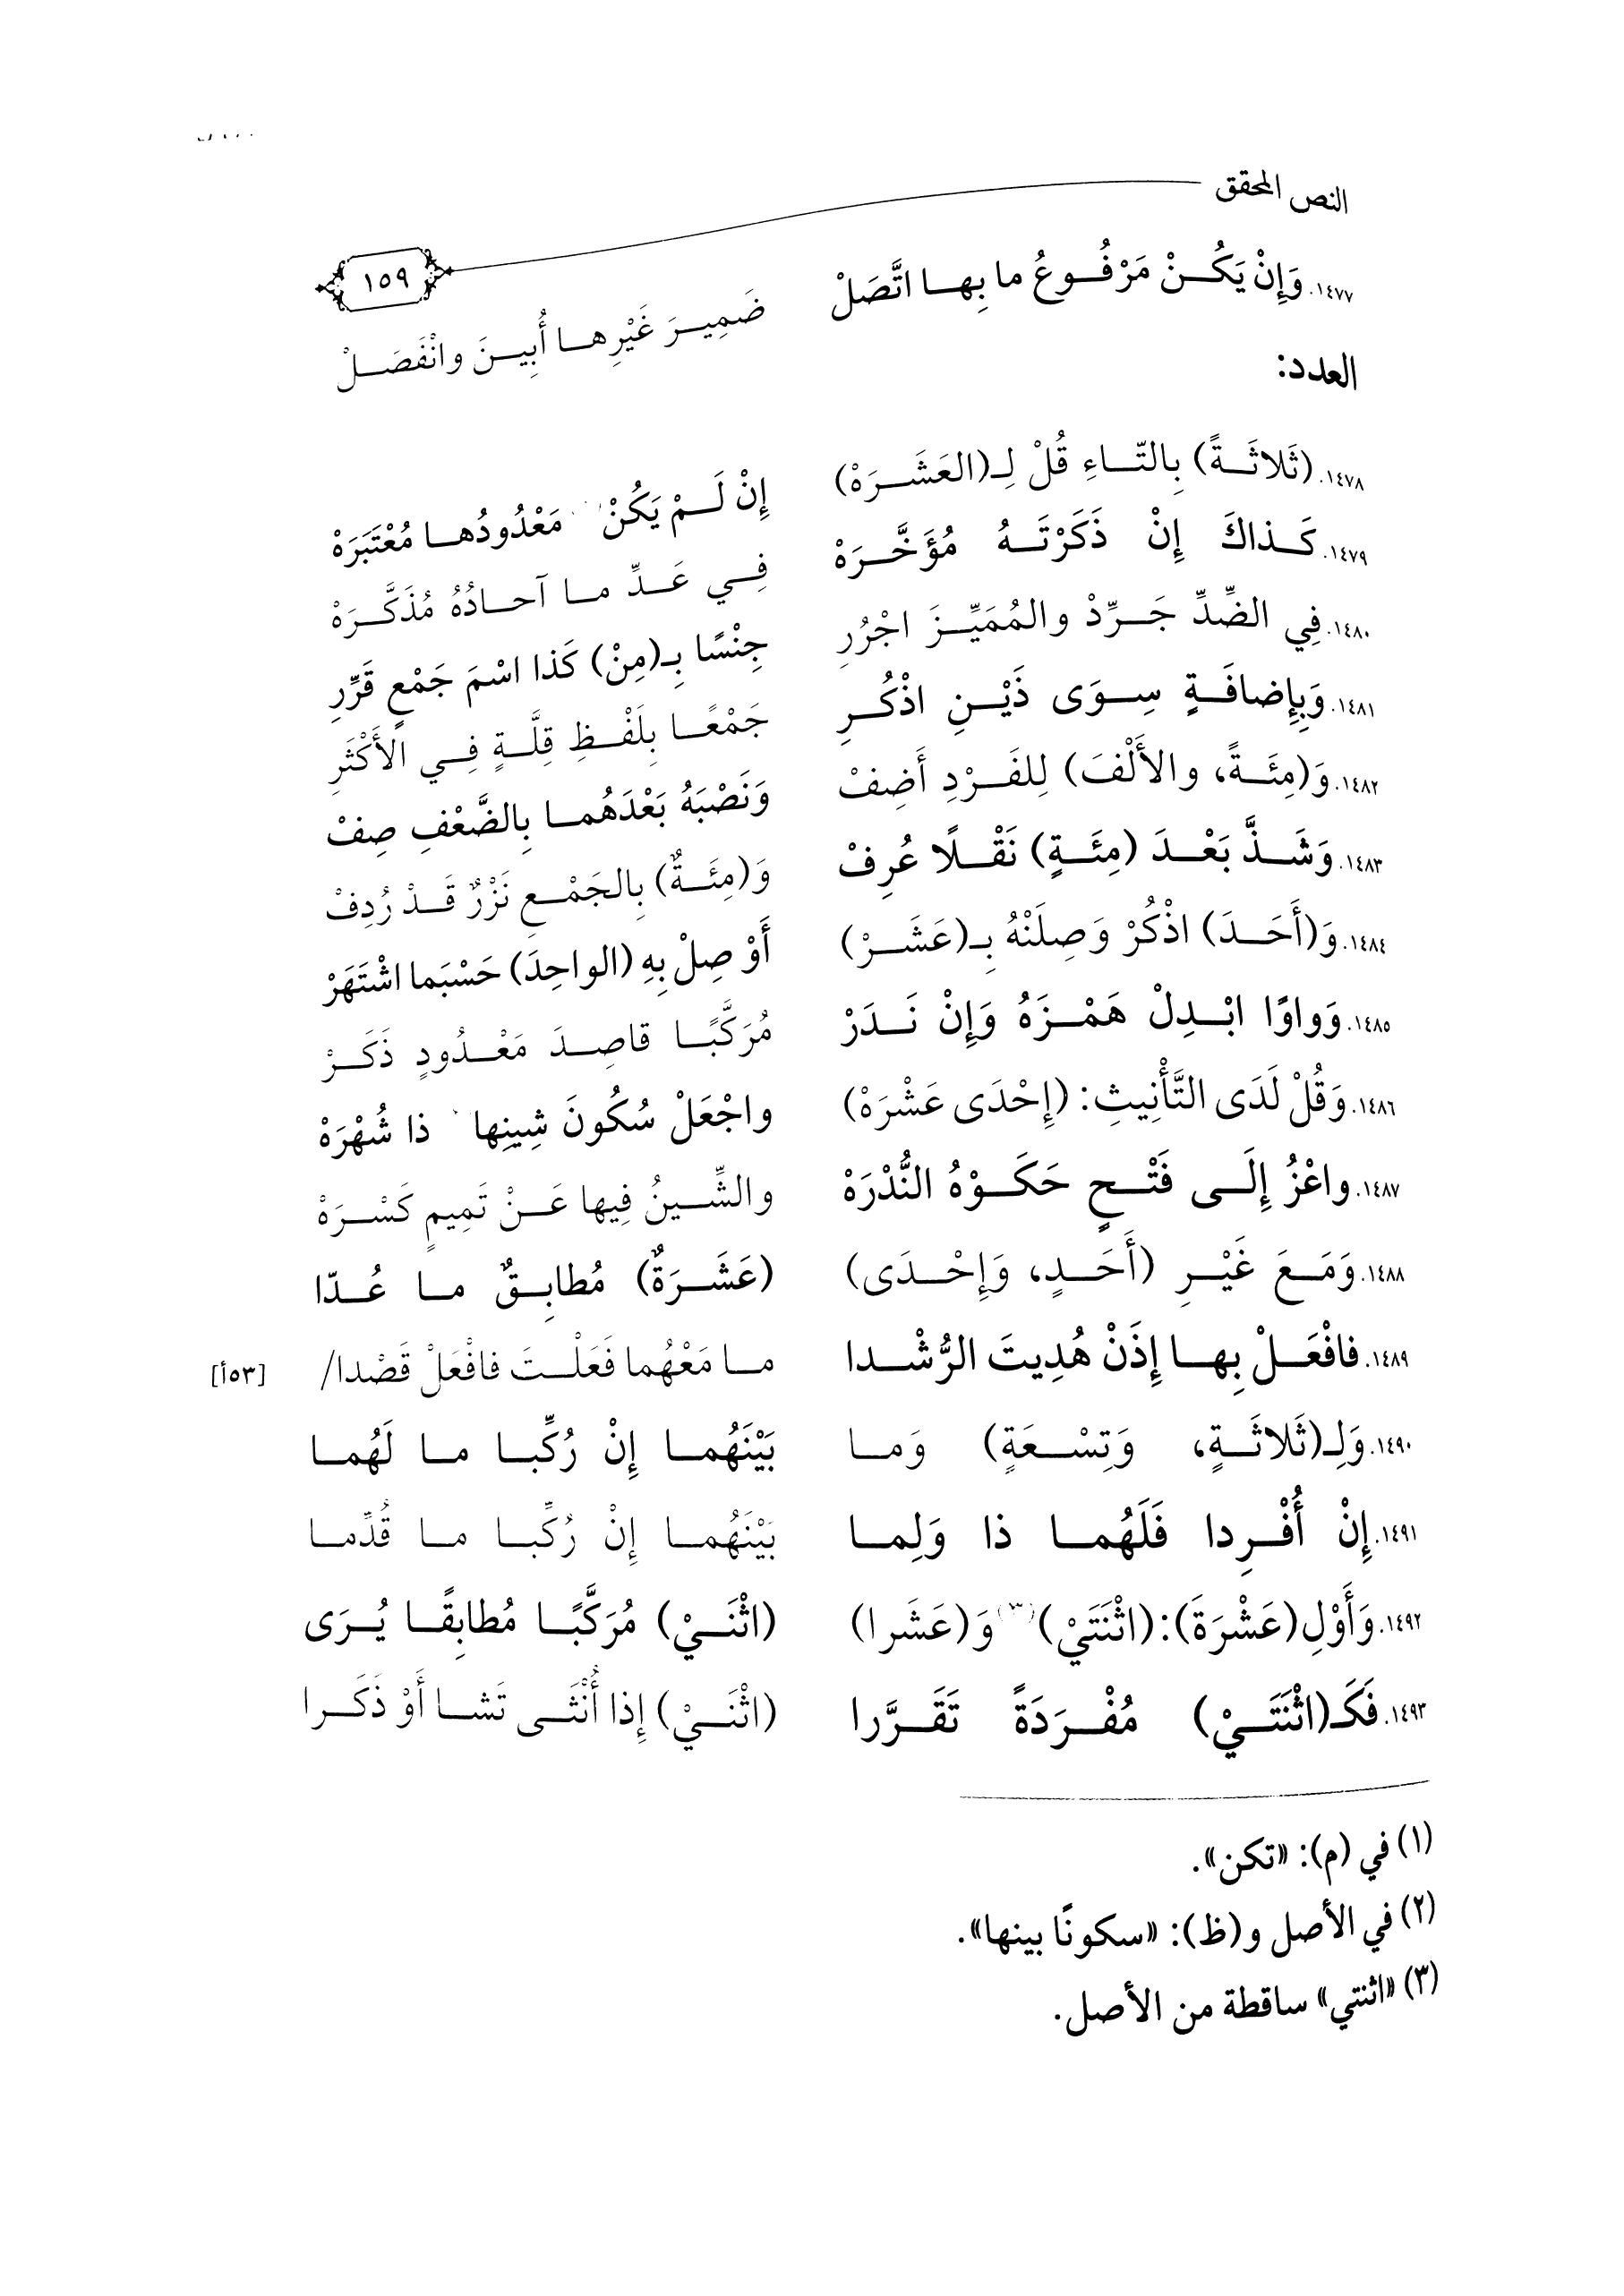 النص المحقق
١٥٩
١٤٧٧. وَإِنْ يَكُنْ مَرْفُوعُ ما بِها اتَّصَلْ ضَمِيرَ غَيْرِها أُبِينَ وانْفَصَلْ
العدد:
١٤٧٨. (ثَلاثَةً) بِالتّاءِ قُلْ لِـ(العَشَرَهْ) إِنْ لَمْ يَكُنْ مَعْدُودُها مُعْتَبَرَهْ
١٤٧٩. كَذاكَ إِنْ ذَكَرْتَهُ مُؤَخَّرَهْ فِي عَدِّ ما آحادُهُ مُذَكَّرَهْ
١٤٨٠. فِي الضِّدِّ جَرِّدْ والمُمَيِّزَ اجْرُرِ جِنْسًا بِـ(مِنْ) كَذا اسْمَ جَمْعٍ قَرِّرِ
١٤٨١. وَبِإِضافَةٍ سِوَى ذَيْنِ اذْكُرِ جَمْعًا بِلَفْظِ قِلَّةٍ فِي الأَكْثَرِ
١٤٨٢. وَ(مِئَةً، والأَلْفَ) لِلفَرْدِ أَضِفْ وَنَصْبَهُ بَعْدَهُما بِالضَّعْفِ صِفْ
١٤٨٣. وَشَذَّ بَعْدَ (مِئَةٍ) نَقْلًا عُرِفْ وَ(مِئَةٌ) بِالجَمْعِ نَزْرٌ قَدْ رُدِفْ
١٤٨٤. وَ(أَحَدَ) اذْكُرْ وَصِلَنْهُ بِـ(عَشَرْ) أَوْ صِلْ بِهِ (الواحِدَ) حَسْبَما اشْتَهَرْ
١٤٨٥. وَواوًا ابْدِلْ هَمْزَهُ وَإِنْ نَدَرْ مُرَكَّبًا قاصِدَ مَعْدُودٍ ذَكَرْ
١٤٨٦. وَقُلْ لَدَى التَّأْنِيثِ: (إِحْدَى عَشْرَهْ) واجْعَلْ سُكُونَ شِينِها ذا شُهْرَهْ
١٤٨٧. واعْزُ إِلَى فَتْحٍ حَكَوْهُ النُّدْرَهْ والشِّينُ فِيها عَنْ تَمِيمٍ كَسْرَهْ
١٤٨٨. وَمَعَ غَيْرِ (أَحَدٍ، وَإِحْدَى) (عَشَرَةٌ) مُطابِقٌ ما عُدّا
١٤٨٩. فافْعَلْ بِها إِذَنْ هُدِيتَ الرُّشْدا ما مَعْهُما فَعَلْتَ فافْعَلْ قَصْدا/ [٥٣أ]
١٤٩٠. وَلِـ(ثَلاثَةٍ، وَتِسْعَةٍ) وَما بَيْنَهُما إِنْ رُكِّبا ما لَهُما
١٤٩١. إِنْ أُفْرِدا فَلَهُما ذا وَلِما بَيْنَهُما إِنْ رُكِّبا ما قُدِّما
١٤٩٢. وَأَوْلِ (عَشْرَةَ): (اثْنَتَيْ)(٣) وَ(عَشَرا) (اثْنَيْ) مُرَكَّبًا مُطابِقًا يُرَى
١٤٩٣. فَكَـ(اثْنَتَيْ) مُفْرَدَةً تَقَرَّرا (اثْنَيْ) إِذا أُنْثَى تَشا أَوْ ذَكَرا
(١) في (م): «تكن».
(٢) في الأصل و(ظ): «سكونًا بينها».
(٣) «اثنتي» ساقطة من الأصل.